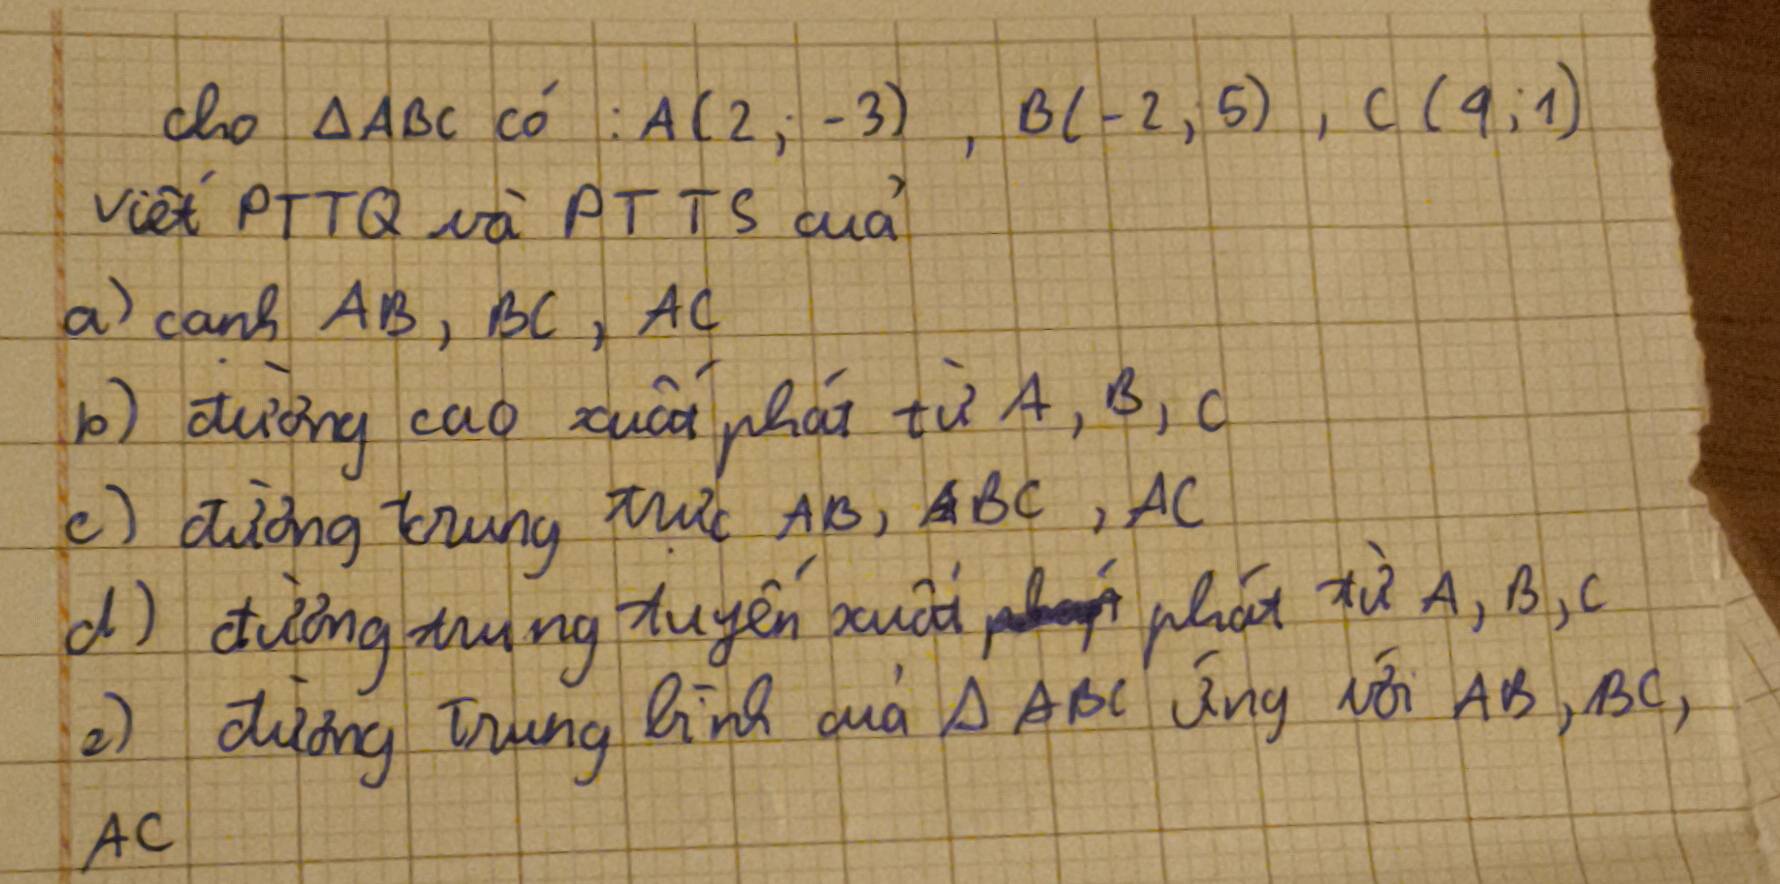 cho ΔABC có : A(2; -3) , B(-2; 5) , C (4; 1)
viết PTTQ và PTTS của
a) cạnh AB, BC, AC
b) đường cao xuất phát từ A, B, C
c) đường trung trực AB, BC, AC
d) đường trung tuyến xuất phát từ A, B, C
e) đường trung bình của Δ ABC ứng với AB, BC,
AC